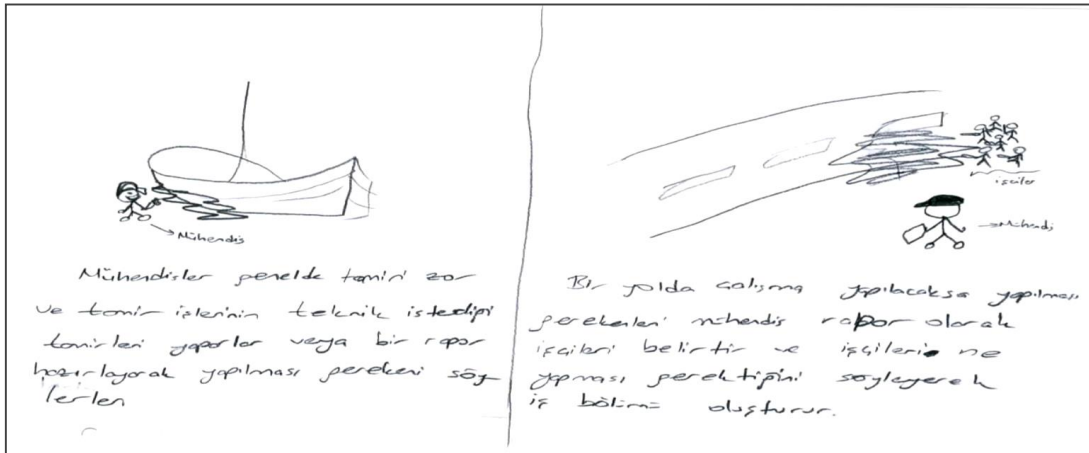 →Mühendis
Mühendisler genelde tamiri zor
ve tamir işlerinin teknik istediği
tamirleri yaparlar veya bir rapor
hazırlayarak yapılması gerekeni söy
lerler
işciler
→Mühendis
Bir yolda çalışma yapılacaksa yapılması
gerekenleri mühendis rapor olarak
işçileri belirtir ve işçilerin ne
yapması gerektiğini söyleyerek
iş bölümü oluşturur.